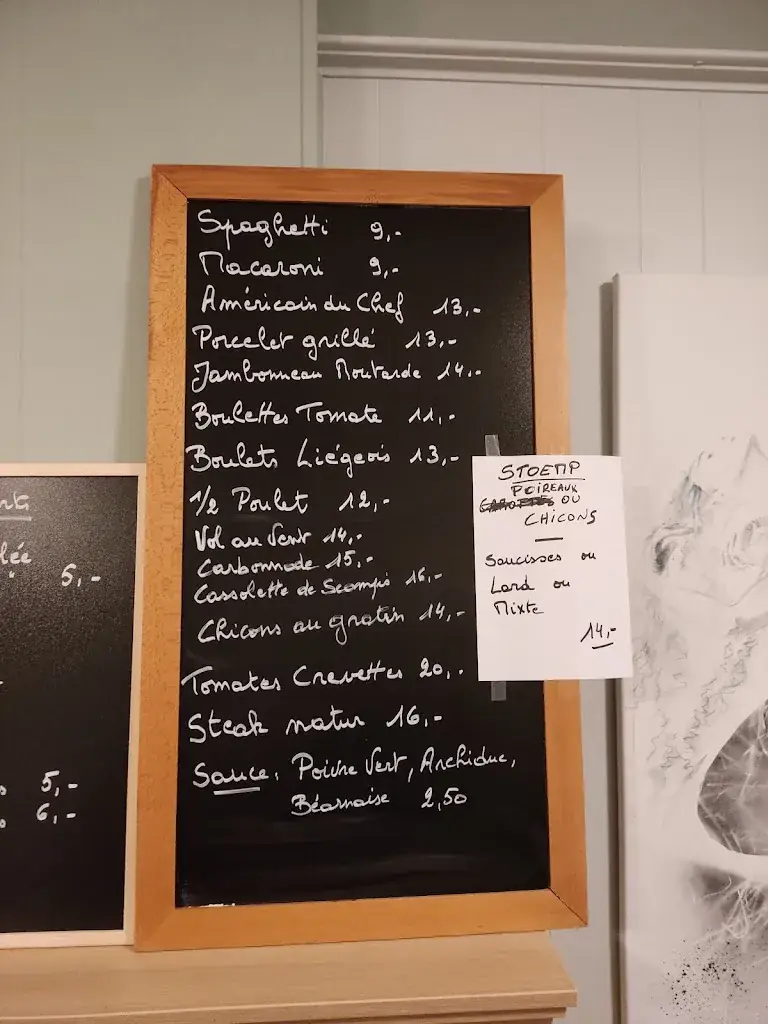 Spaghetti 9,-
Macaroni 9,-
Américain du Chef 13,-
Porcelet grillé 13,-
Jambonneau Moutarde 14,-
Boulettes Tomate 11,-
Boulets Liégeois 13,-
1/2 Poulet 12,-
Vol au Vent 14,-
Carbonnade 15,-
Cassolette de Scampis 16,-
Chicons au gratin 14,-
Tomates Crevettes 20,-
Steak natur 16,-
Sauce, Poivre Vert, Archiduc,
Béarnaise 2,50
STOEMP
POIREAUX
OU
CHICONS
Saucisses ou
Lard ou
Mixte
14,-
5,-
5,-
6,-